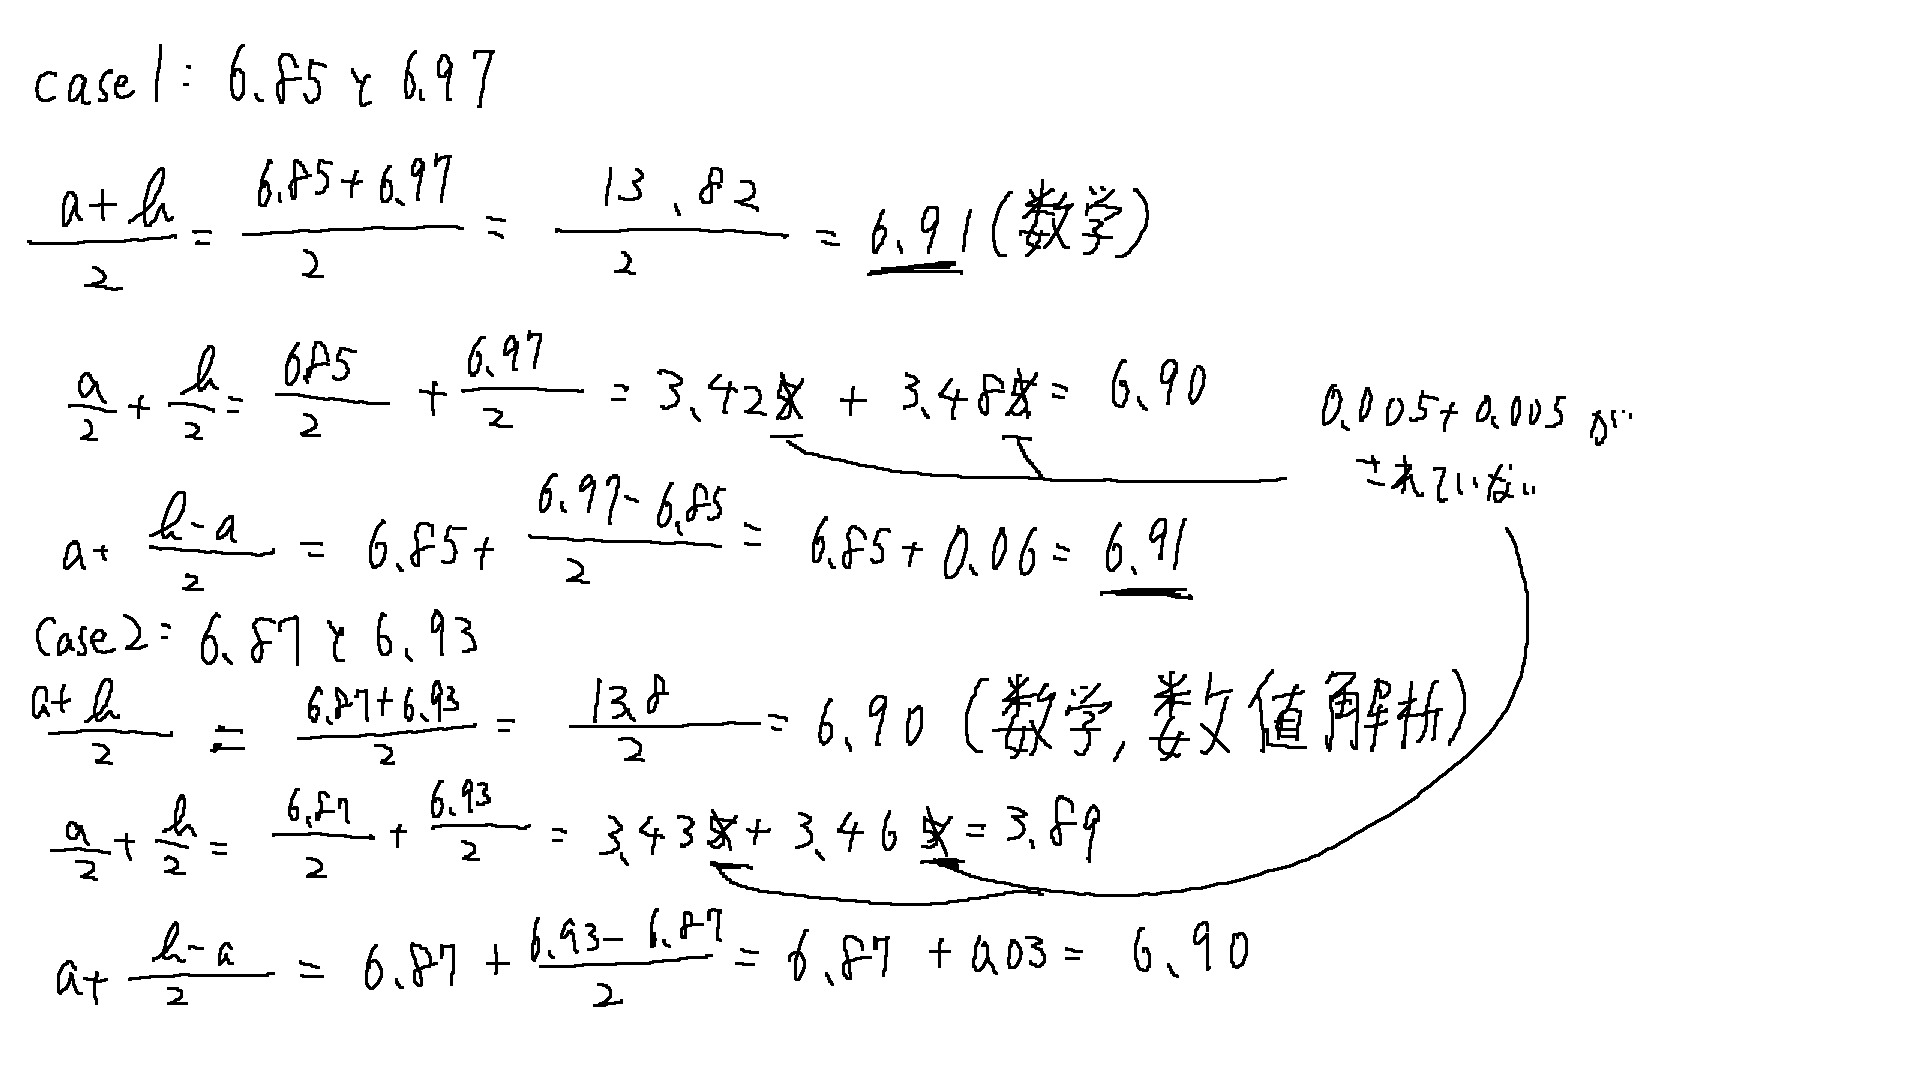 case1: 6.85と6.97
(a+b)/2 = (6.85+6.97)/2 = 13.82/2 = 6.91(数学)
a/2 + b/2 = 685/2 + 6.97/2 = 3.425 + 3.485 = 6.90
0.005+0.005が
されていない
a+ (b-a)/2 = 6.85+ (6.97-6.85)/2 = 6.85+0.06= 6.91
Case2: 6.87と6.93
(a+b)/2 = (6.87+6.93)/2 = 13.8/2 = 6.90 (数学,数値解析)
a/2 + b/2 = 6.87/2 + 6.93/2 = 3.435+ 3.465 = 3.89
a+ (b-a)/2 = 6.87 + (6.93-6.87)/2 = 6.87 + 0.03 = 6.90